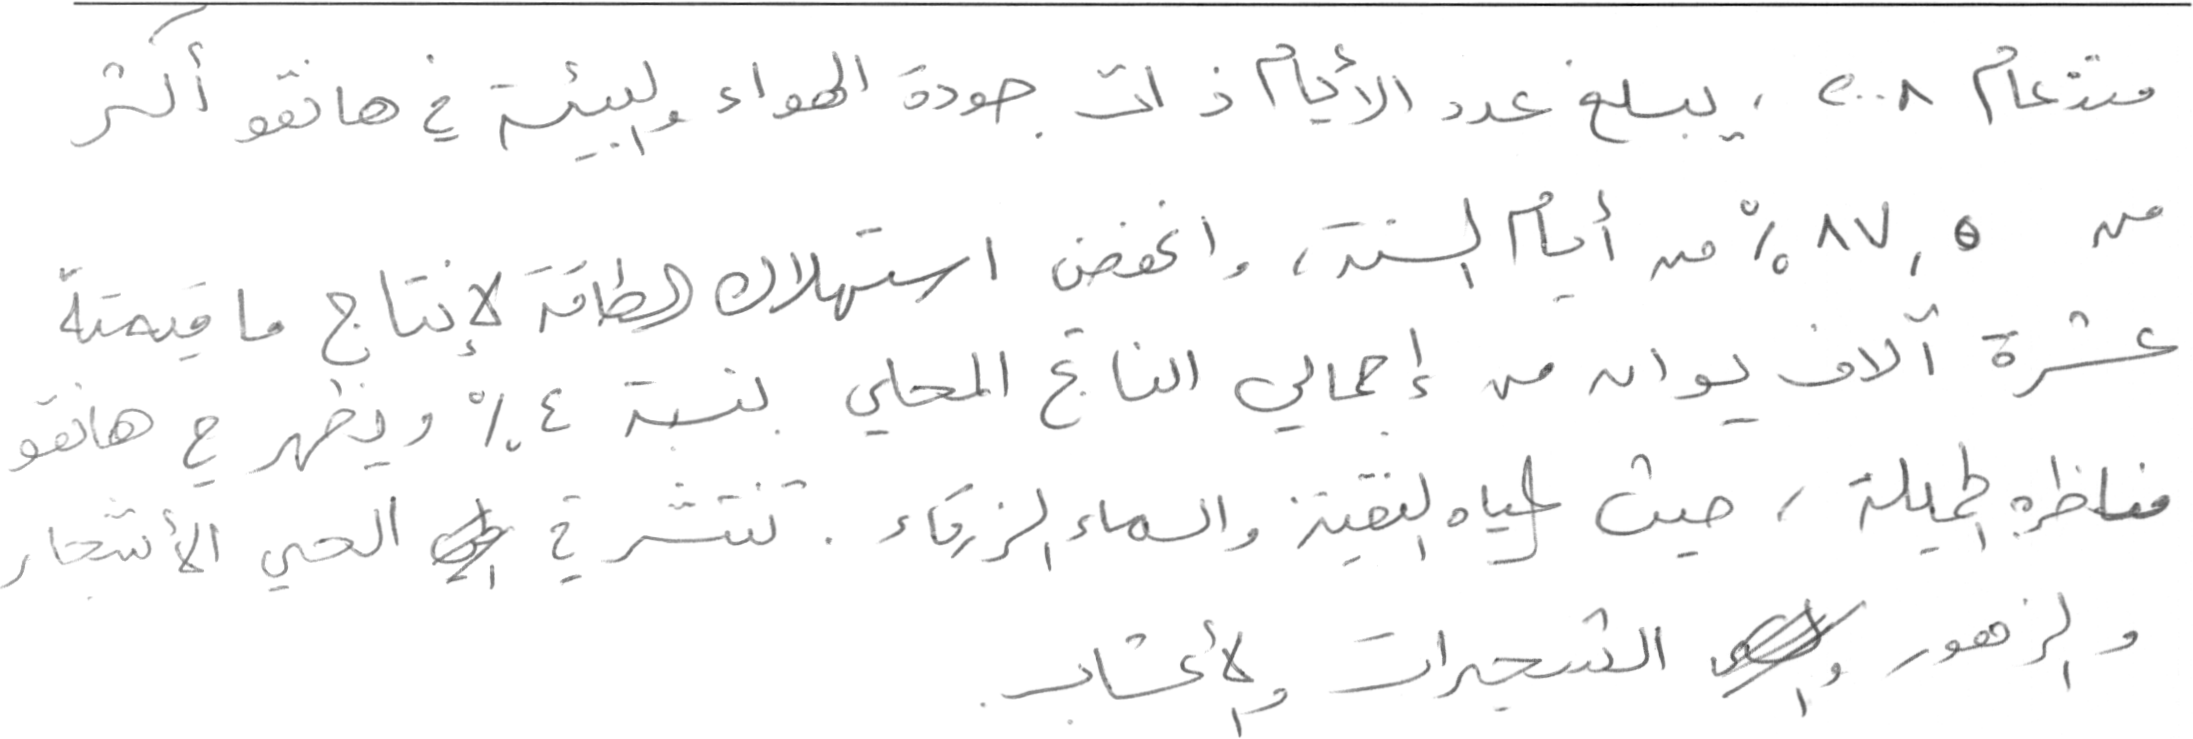 منذ عام ٢٠٠٨، يبلغ عدد الأيام ذات جودة الهواء والبيئة في هانقو أكثر
من ٨٧,٥٪ من أيام السنة، وانخفض استهلاك الطاقة لإنتاج ما قيمته
عشرة آلاف يوان من إجمالي الناتج المحلي بنسبة ٤٪ ويظهر ح هانقو
مناظره الجميلة، حيث المياه النقية والسماء الزرقاء. تنتشر في الحي الأشجار
والزهور و الشجيرات والأعشاب.